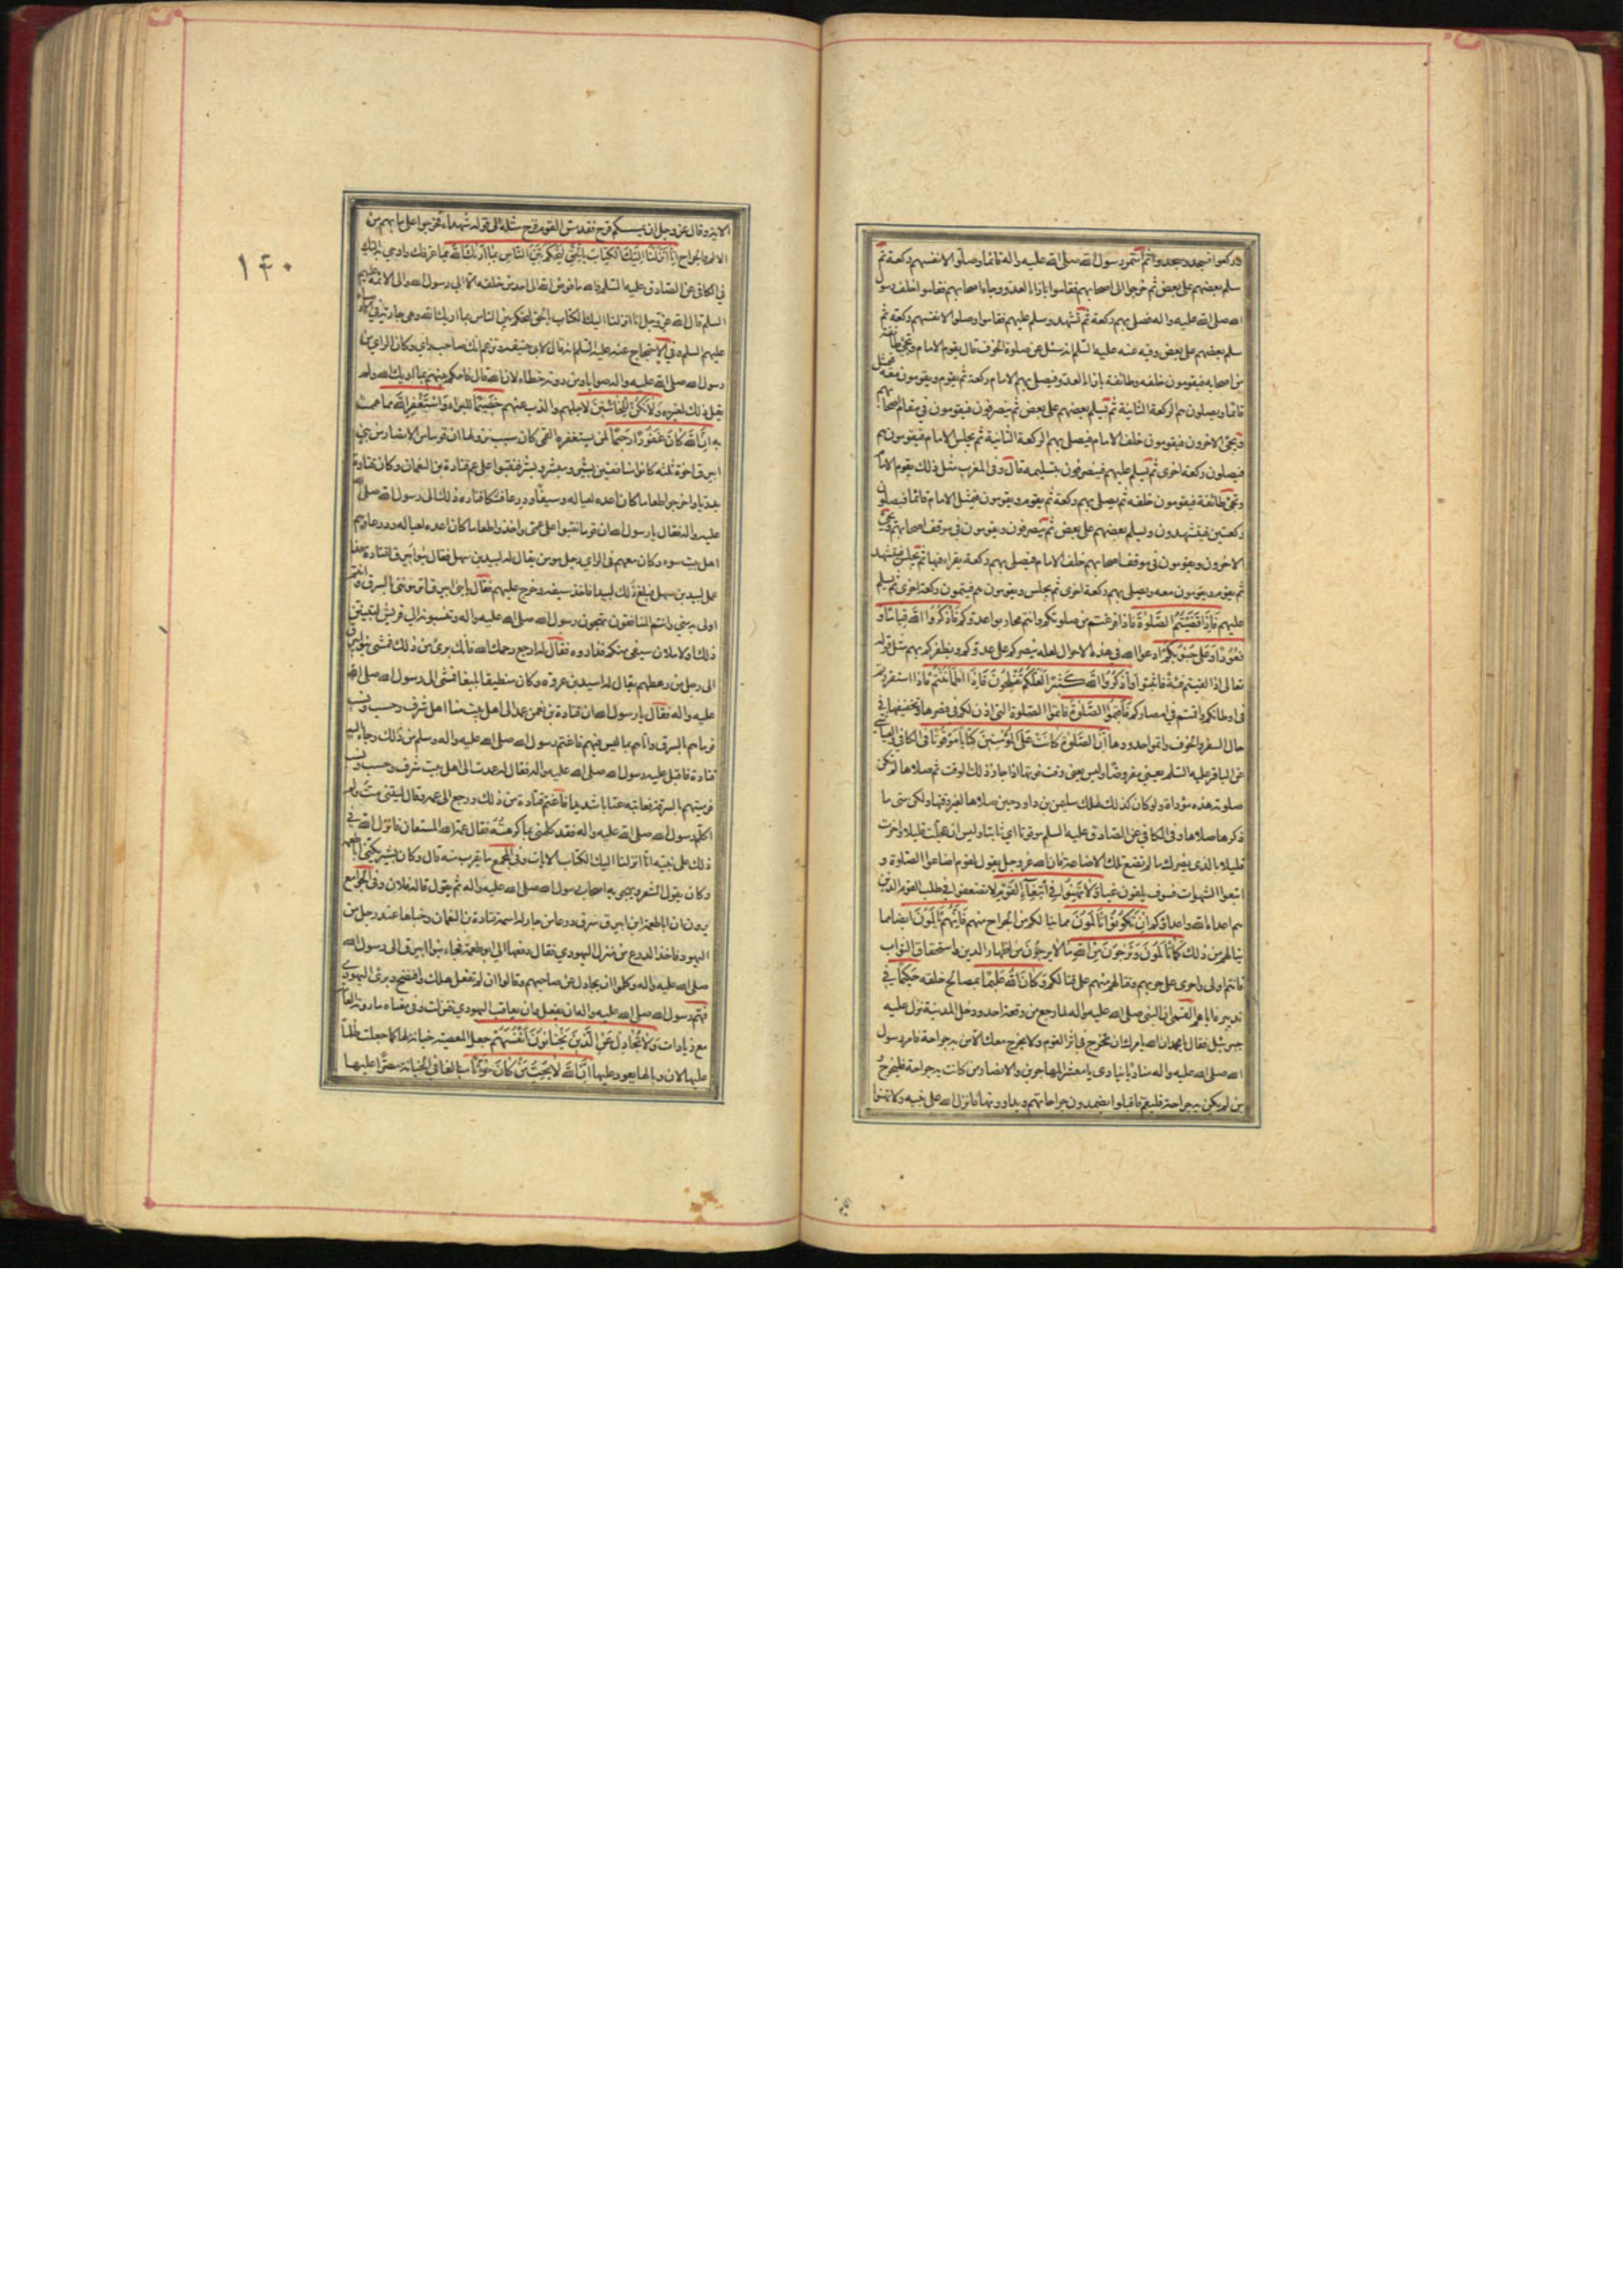 و ركعوا فسجد وسجدوا ثم استمر رسول الله صلى الله عليه واله قائما وصلوا لانفسهم ركعة ثم
سلم بعضهم على بعض ثم خرجوا الى اصحابهم فقاموا بازاء العدو وجاء اصحابهم فقاموا خلف رسول
الله صلى الله عليه واله فصلى بهم ركعة ثم تشهد وسلم عليهم فقاموا وصلوا لانفسهم ركعة ثم
سلم بعضهم على بعض وفيه عنه عليه السلم انه سئل عن صلوة الخوف قال يقوم الامام وتجئ طائفة
من اصحابه فيقومون خلفه وطائفة بازاء العدو فيصلي بهم الامام ركعة ثم يقوم ويقومون معه فيمثل
قائما ويصلون هم الركعة الثانية ثم يسلم بعضهم على بعض ثم ينصرفون فيقومون في مقام اصحابهم
ويجئ الاخرون فيقومون خلف الامام فيصلي بهم الركعة الثانية ثم يجلس الامام فيقومون هم
فيصلون ركعة اخرى ثم يسلم عليهم فينصرفون بتسليمه قال وفي المغرب مثل ذلك يقوم الامام
وتجئ طائفة فيقومون خلفه ثم يصلي بهم ركعة ثم يقوم ويقومون فيمثل الامام قائما فيصلون
ركعتين فيتشهدون ويسلم بعضهم على بعض ثم ينصرفون ويقومون في موقف اصحابهم ويجئ
الاخرون ويقومون في موقف اصحابهم خلف الامام فيصلي بهم ركعة يقرا فيها ثم يجلس فيتشهد
ثم يقوم ويقومون معه ويصلي بهم ركعة اخرى ثم يجلس ويقومون هم فيتمون ركعة اخرى ثم يسلم
عليهم فَاِذَا قَضَيْتُمُ الصَّلٰوةَ فاذا فرغتم من صلوتكم وانتم محاربوا عدوكم فَاذْكُرُوا اللّٰهَ قِيامًا وَ
قُعُودًا وَعَلٰى جُنُوبِكُمْ ادعوا الله في هذه الاحوال لعله ينصركم على عدوكم ويظفركم بهم مثل قوله
تعالى اذا لقيتم فئة فاثبتوا واذْكُرُوا اللّٰهَ كَثيرًا لَعَلَّكُمْ تُفْلِحُونَ فَاِذَا اطْمَأْنَنْتُمْ فاذا استقررتم
في اوطانكم واقمتم في امصاركم فَاَقيمُوا الصَّلٰوةَ فاتموا الصلوة التي اذن لكم في قصرها وتخفيفها في
حال السفر والخوف واتموا حدودها اِنَّ الصَّلٰوةَ كانَتْ عَلَى الْمُؤْمِنينَ كِتابًا مَوْقُوتًا في الكافي والعياشي
عن الباقر عليه السلم يعني مفروضا وليس يعني وقت فوتها اذا جاز ذلك الوقت ثم صلاها لم تكن
صلوته هذه مؤداة ولو كان كذلك لهلك سليمن بن داود حين صلاها لغير وقتها ولكن متى ما
ذكرها صلاها وفي الكافي عن الصادق عليه السلم موقوتا اي ثابتا وليس ان عجلت قليلا واخرت
قليلا بالذي يضرك ما لم تضع تلك الاضاعة فان الله عز وجل يقول لقوم اضاعوا الصلوة و
اتبعوا الشهوات فسوف يلقون غيا وَلا تَهِنُوا فِي ابْتِغاءِ الْقَوْمِ لا تضعفوا في طلب القوم الذين
هم اعداء الله واعداؤكم اِنْ تَكُونُوا تَأْلَمُونَ مما ينالكم من الجراح منهم فَاِنَّهُمْ يَأْلَمُونَ ايضا مما
ينالهم من ذلك كَما تَأْلَمُونَ وَتَرْجُونَ مِنَ اللّٰهِ ما لا يَرْجُونَ من اظهار الدين واستحقاق الثواب
فانتم اولى واحرى على حربهم وقتالهم منهم على قتالكم وَكانَ اللّٰهُ عَليمًا بمصالح خلقه حَكيمًا في
تدبيره اياهم القمي ان النبي صلى الله عليه واله لما رجع من وقعة احد ودخل المدينة نزل عليه
جبرئيل فقال يا محمد ان الله يامرك ان تخرج في اثر القوم ولا يخرج معك الا من به جراحة فامر رسول
الله صلى الله عليه واله مناديا ينادي يا معشر المهاجرين والانصار من كانت به جراحة فليخرج
من لم يكن به جراحة فليقم فاقبلوا يضمدون جراحاتهم ويداوونها فانزل الله على نبيه ولا تهنوا
١٤٠
الاية وقال عز وجل ان يمسسكم قرح فقد مس القوم قرح مثله الى قوله شهداء فخرجوا على ما بهم من
الالم والجراح اِنّا اَنْزَلْنا اِلَيْكَ الْكِتابَ بِالْحَقِّ لِتَحْكُمَ بَيْنَ النّاسِ بِما اَرٰيكَ اللّٰهُ بما عرفك واوحي به اليك
في الكافي عن الصادق عليه السلم والله ما فوض الله الى احد من خلقه الا الى رسول الله والى الائمة عليهم
السلم قال الله عز وجل انا انزلنا اليك الكتاب بالحق لتحكم بين الناس بما اريك الله وهي جارية في اوصيائه
عليهم السلم وفي الاحتجاج عنه عليه السلم انه قال لابي حنيفة وتزعم انك صاحب راي وكان الراي من
رسول الله صلى الله عليه واله صوابا ومن دونه خطاء لان الله قال فاحكم بينهم بما اريك الله ولم
يقل ذلك لغيره وَلا تَكُنْ لِلْخائِنينَ لاجلهم والذب عنهم خَصيمًا للبراء وَاسْتَغْفِرِ اللّٰهَ مما هممت
به اِنَّ اللّٰهَ كانَ غَفُورًا رَحيمًا لمن يستغفره القمي كان سبب نزولها ان قوما من الانصار من بني
ابيرق اخوة ثلثة كانوا منافقين بشير ومبشر وبشر فنقبوا على عم قتادة بن النعمان وكان قتادة
بدريا واخرجوا طعاما كان اعده لعياله وسيفا ودرعا فشكا قتاده ذلك الى رسول الله صلى الله
عليه واله فقال يا رسول الله ان قوما نقبوا على عمي واخذوا طعاما كان اعده لعياله ودرعا وهم
اهل بيت سوء وكان معهم في الراي رجل مؤمن يقال له لبيد بن سهل فقال بنوا ابيرق لقتادة هذا
عمل لبيد بن سهل فبلغ ذلك لبيدا فاخذ سيفه وخرج عليهم فقال يا بني ابيرق اترمونني بالسرق وانتم
اولى به مني وانتم المنافقون تهجون رسول الله صلى الله عليه واله وتنسبونه الى قريش لتبينن
ذلك او لاملان سيفي منكم فداروه فقالوا له ارجع رحمك الله فانك بريء من ذلك فمشى بنو ابيرق
الى رجل من رهطهم يقال له اسيد بن عروه وكان منطيقا بليغا فمشى الى رسول الله صلى الله
عليه واله فقال يا رسول الله ان قتادة بن النعمن عمد الى اهل بيت منا اهل شرف وحسب ونسب
فرماهم بالسرق واتاهم بما ليس فيهم فاغتم رسول الله صلى الله عليه واله وسلم من ذلك وجاء اليه
قتادة فاقبل عليه رسول الله صلى الله عليه واله فقال له عمدت الى اهل بيت شرف وحسب ونسب
فرميتهم بالسرقة فعاتبه عتابا شديدا فاغتم قتادة من ذلك ورجع الى عمه وقال ليتني مت ولم
اكلم رسول الله صلى الله عليه واله فقد كلمني بما كرهته فقال عمه الله المستعان فانزل الله في
ذلك على نبيه انا انزلنا اليك الكتاب الايات وفي المجمع ما يقرب منه قال وكان بشير يكنى ابا طعمة
وكان يقول الشعر ويهجو به اصحاب رسول الله صلى الله عليه واله ثم يقول قاله فلان وفي الجوامع
يروى ان ابا طعمة ابن ابيرق سرق درعا من جار له اسمه قتادة بن النعمان وخباها عند رجل من
اليهود فاخذ الدرع من منزل اليهودي فقال دفعها الي ابو طعمة فجاء بنوا ابيرق الى رسول الله
صلى الله عليه واله وكلموا ان يجادل عن صاحبهم وقالوا ان لم تفعل هلك وافتضح وبرئ اليهودي
فهم رسول الله صلى الله عليه واله ان يفعل وان يعاقب اليهودي فنزلت وفي معناه ما روته العامة
مع زيادات وَلا تُجادِلْ عَنِ الَّذينَ يَخْتانُونَ اَنْفُسَهُمْ جعل المعصية خيانة لها كما جعلت ظلما
عليها لان وبالها يعود عليها اِنَّ اللّٰهَ لا يُحِبُّ مَنْ كانَ خَوّانًا مبالغا في الخيانة مصرا عليها